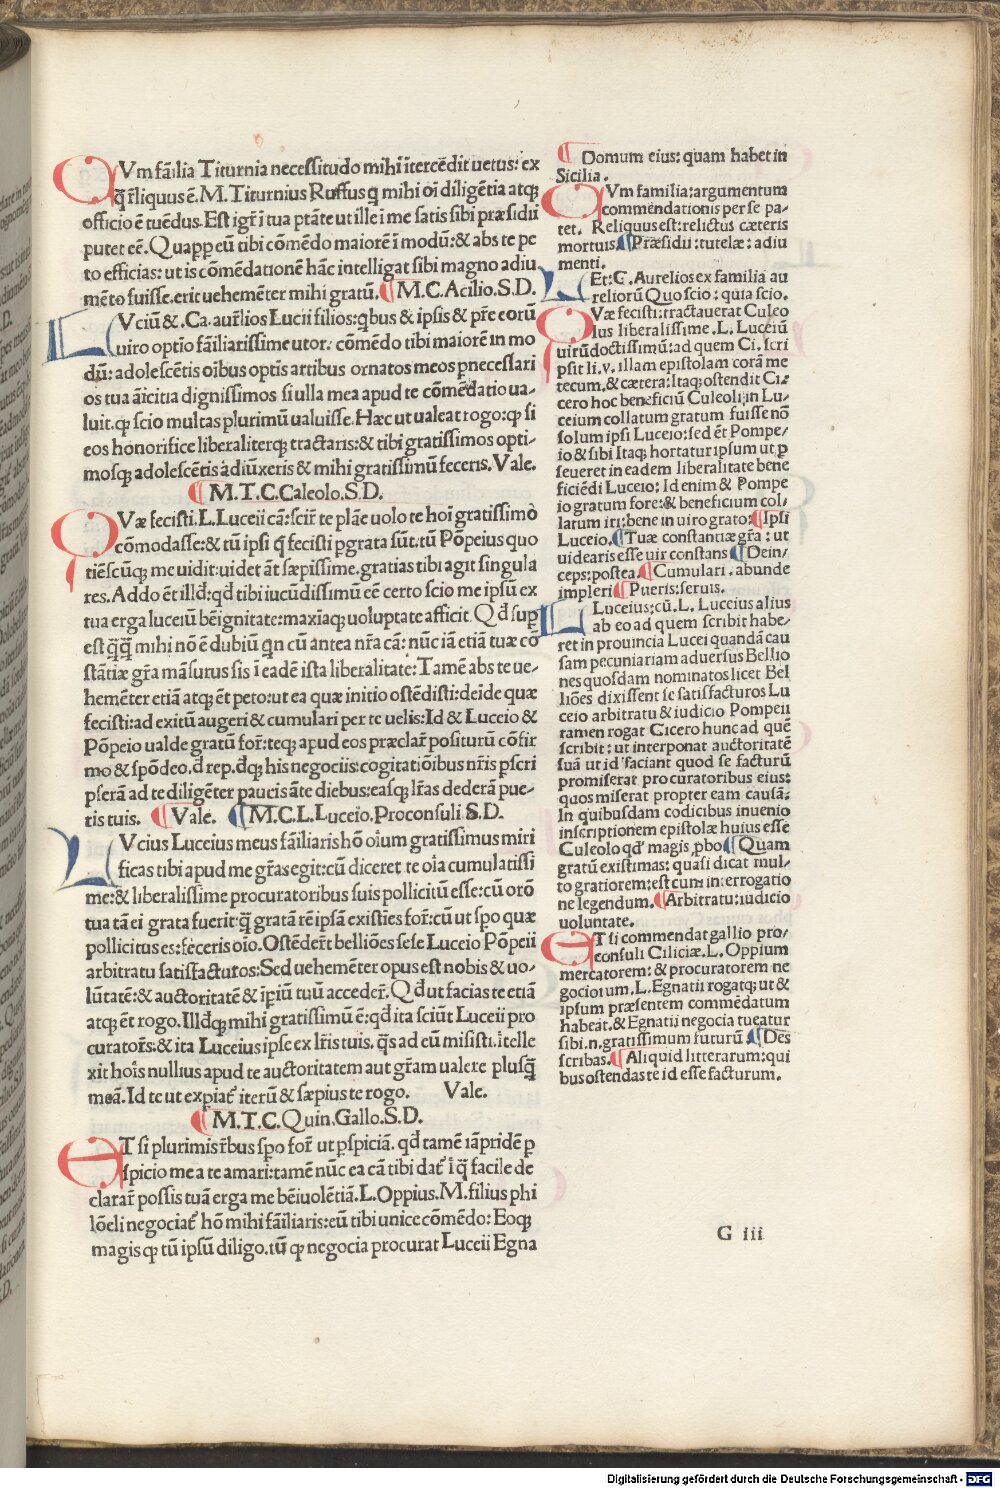 QVm fãilia Titurnia necessitudo mihi ĩtercẽdit uetus: ex
q̃ r̃liquus ẽ. M. Titurnius Ruffus q mihi oĩ diligẽtia atqꝫ
officio ẽ tuẽdus. Est igr̃ ĩ tua ptãte ut ille ĩ me satis sibi præsidii
putet eẽ. Quapp eũ tibi cõmẽdo maiorẽ ĩ modũ: & abs te pe
to efficias: ut is cõmẽdationẽ hãc intelligat sibi magno adiu
mẽto fuisse. erit uehemẽter mihi gratũ. M. C. Acilio. S. D.
LVciũ & . Ca. aur̃lios Lucii filios: qbus & ipsis & pr̃e eorũ
uiro optĩo fãiliarissime utor: cõmẽdo tibi maiorẽ in mo
dũ: adolescẽtis oĩbus optis artibus ornatos meos pnecessari
os tua ãicitia dignissimos si ulla mea apud te cõmẽdatio ua-
luit. qꝫ scio multas plurimũ ualuisse. Hæc ut ualeat rogo: qꝫ si
eos honorifice liberaliterqꝫ tractaris: & tibi gratissimos opti-
mosqꝫ adolescẽtis adiũxeris & mihi gratissimũ feceris. Vale.
M. T. C. Caleolo. S. D.
QVæ fecisti. L. Luceii cã: scir̃ te plãe uolo te hoĩ gratissimo
cõmodasse: & tũ ipsi q̃ fecisti pgrata sũt. tũ Põpeius quo
tiẽscũqꝫ me uidit: uidet ãt sæpissime. gratias tibi agit singula
res. Addo ẽt illđ: qđ tibi iucũdissimũ eẽ certo scio me ipsũ ex
tua erga luceiũ bẽignitate: maxĩaqꝫ uoluptate affici. Qđ sup
est q̃q̃ mihi nõ ẽ dubiũ qn cũ antea nr̃a cã: nũc iã etiã tuæ cõ
stãtiæ gr̃a mãsurus sis ĩ eadẽ ista liberalitate: Tamẽ abs te ue-
hemẽter etiã atqꝫ ẽt peto: ut ea quæ initio ostẽdisti: deĩde quæ
fecisti: ad exitũ augeri & cumulari per te uelis: Id & Luceio &
Põpeio ualde gratũ for̃: teqꝫ apud eos præclar̃ positurũ cõfir
mo & spõdeo. đ rep. đqꝫ his negociis: cogitatiõibus nr̃is pscri
pserã ad te diligẽter paucis ãte diebus: easqꝫ lr̃as dederã pue-
ris tuis. Vale. M. C. L. Luceio. Proconsuli S. D.
LVcius Luceius meus fãiliaris hõ oĩum gratissimus miri
ficas tibi apud me gr̃as egit: cũ diceret te oĩa cumulatissi
me: & liberalissime procuratoribus suis pollicitũ esse: cũ orõ
tua tã ei grata fuerit: q̃ gratã rẽ ipsã existĩes for̃: cũ ut spo quæ
pollicitus es: feceris oĩo. Ostẽder̃t belliões sese Luceio Põpeii
arbitratu satisfacturos: Sed uehemẽter opus est nobis & uo-
lũtatẽ: & auctoritatẽ & ĩpiũ tuũ acceder̃. Qđ ut facias te etiã
atqꝫ ẽt rogo. Illđqꝫ mihi gratissimũ ẽ: qđ ita sciũt Luceii pro
curator̃s: & ita Luceius ipse ex lr̃is tuis. q̃s ad eũ misisti. ĩtelle
xit hoĩs nullius apud te auctoritatem aut gr̃am ualere plusq̃
meã. Id te ut expiat̃ iterũ & sæpius te rogo. Vale.
M. T. C. Quin. Gallo. S. D.
ET si plurimis r̃bus spo for̃ ut pspiciã. qđ tamẽ iãpridẽ p
spicio me a te amari: tamẽ nũc ea cã tibi dat̃ ĩ q̃ facile de
clarar̃ possis tuã erga me bẽiuolẽtiã. L. Oppius. M. filius phi
lõeli negociat̃ hõ mihi fãiliaris: eũ tibi unice cõmẽdo: Eoqꝫ
magis qꝫ tũ ipsũ diligo. tũ qꝫ negocia procurat Luceii Egna
Domum eius: quam habet in
Sicilia.
QVm familia: argumentum
commendationis per se pa-
tet. Reliquus est: relictus cæteris
mortuis. Præsidii: tutelæ: adiu
menti.
LEt: C. Aurelios ex familia au
reliorũ Quo scio: quia scio.
QVæ fecisti: tractauerat Culeo
lus liberalissime. L. Luceiũ
uirũ doctissimũ: ad quem Ci. scri
psit li. v. illam epistolam corã me
tecum. & cætera: Itaqꝫ ostendit Ci-
cero hoc beneficiũ Culeoli in Lu-
ceium collatum gratum fuisse nõ
solum ipsi Luceio: sed ẽt Pompe-
io & sibi Itaqꝫ hortatur ipsum ut p
seueret in eadem liberalitate bene
ficiẽdi Luceio: Id enim & Pompe
io gratum fore: & beneficium col-
latum iri: bene in uiro grato: Ipsi
Luceio. Tuæ constantiæ gr̃a: ut
uidearis esse uir constans Dein-
ceps: postea. Cumulari. abunde
impleri Pueris: seruis.
LLuceius: cũ. L. Luceius alius
ab eo ad quem scribit habe-
ret in prouincia Lucei quandã cau
sam pecuniariam aduersus Bellio
nes quosdam nominatos licet Bel
liões dixissent se satisfacturos Lu
ceio arbitratu & iudicio Pompeii
tamen rogat Cicero hunc ad quẽ
scribit: ut interponat auctoritatẽ
suã ut id faciant quod se facturũ
promiserat procuratoribus eius:
quos miserat propter eam causã:
In quibusdam codicibus inuenio
inscriptionem epistolæ huius esse
Culeolo qđ magis pbo Quam
gratũ existimas: quasi dicat mul-
to gratiorem: est cum interrogatio
ne legendum. Arbitratu: iudicio
uoluntate.
ET si commendat gallio pro-
consuli Ciliciæ. L. Oppium
mercatorem: & procuratorem ne
gociorum. L. Egnatii rogatqꝫ ut &
ipsum præsentem commẽdatum
habeat. & Egnatii negocia tueatur
sibi. n. gratissimum futurũ Des
scribas. Aliquid litterarum: qui
bus ostendas te id esse facturum.
G iii
Digitalisierung gefördert durch die Deutsche Forschungsgemeinschaft - DFG